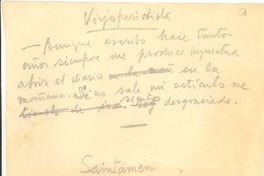 Viejo periodista
— Aunque escribo hace tantos
años siempre me produce inquietud
abrir el diario en la
mañana. Si no sale mi artículo me
siento desgraciado.
Santamen